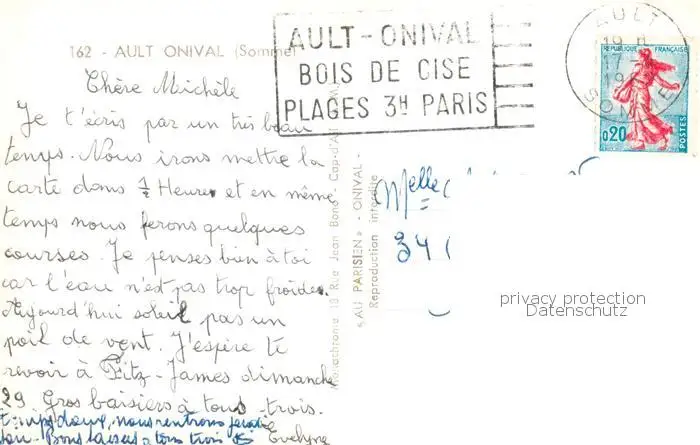 162 - AULT ONIVAL (Somme)
AULT - ONIVAL
BOIS DE CISE
PLAGES 3H PARIS
AULT
17
SOMME
REPUBLIQUE FRANÇAISE
0,20
POSTES
Chère Michèle
Je t'écris par un très beau
temps. Nous irons mettre la
carte dans 1/2 Heure et en même
temps nous ferons quelques
courses. Je penses bien à toi
car l'eau n'est pas trop froides.
Aujourd'hui soleil pas un
poil de vent. J'espère te
revoir à Fitz-James dimanche
29 Gros baisers à tous trois.
nous rentrons
Bons baisers à tous trois Evelyne
18, Rue Jean Bono - Cap-d'Ail
"AU PARISIEN" - ONIVAL -
Reproduction interdite
Melle
34
privacy protection
Datenschutz